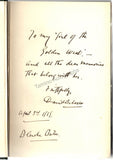 To my "Girl of the
Golden West" -
and all the dear memories
that belong with her.
Faithfully
David Belasco
April 3rd 1925
Blanche Bates